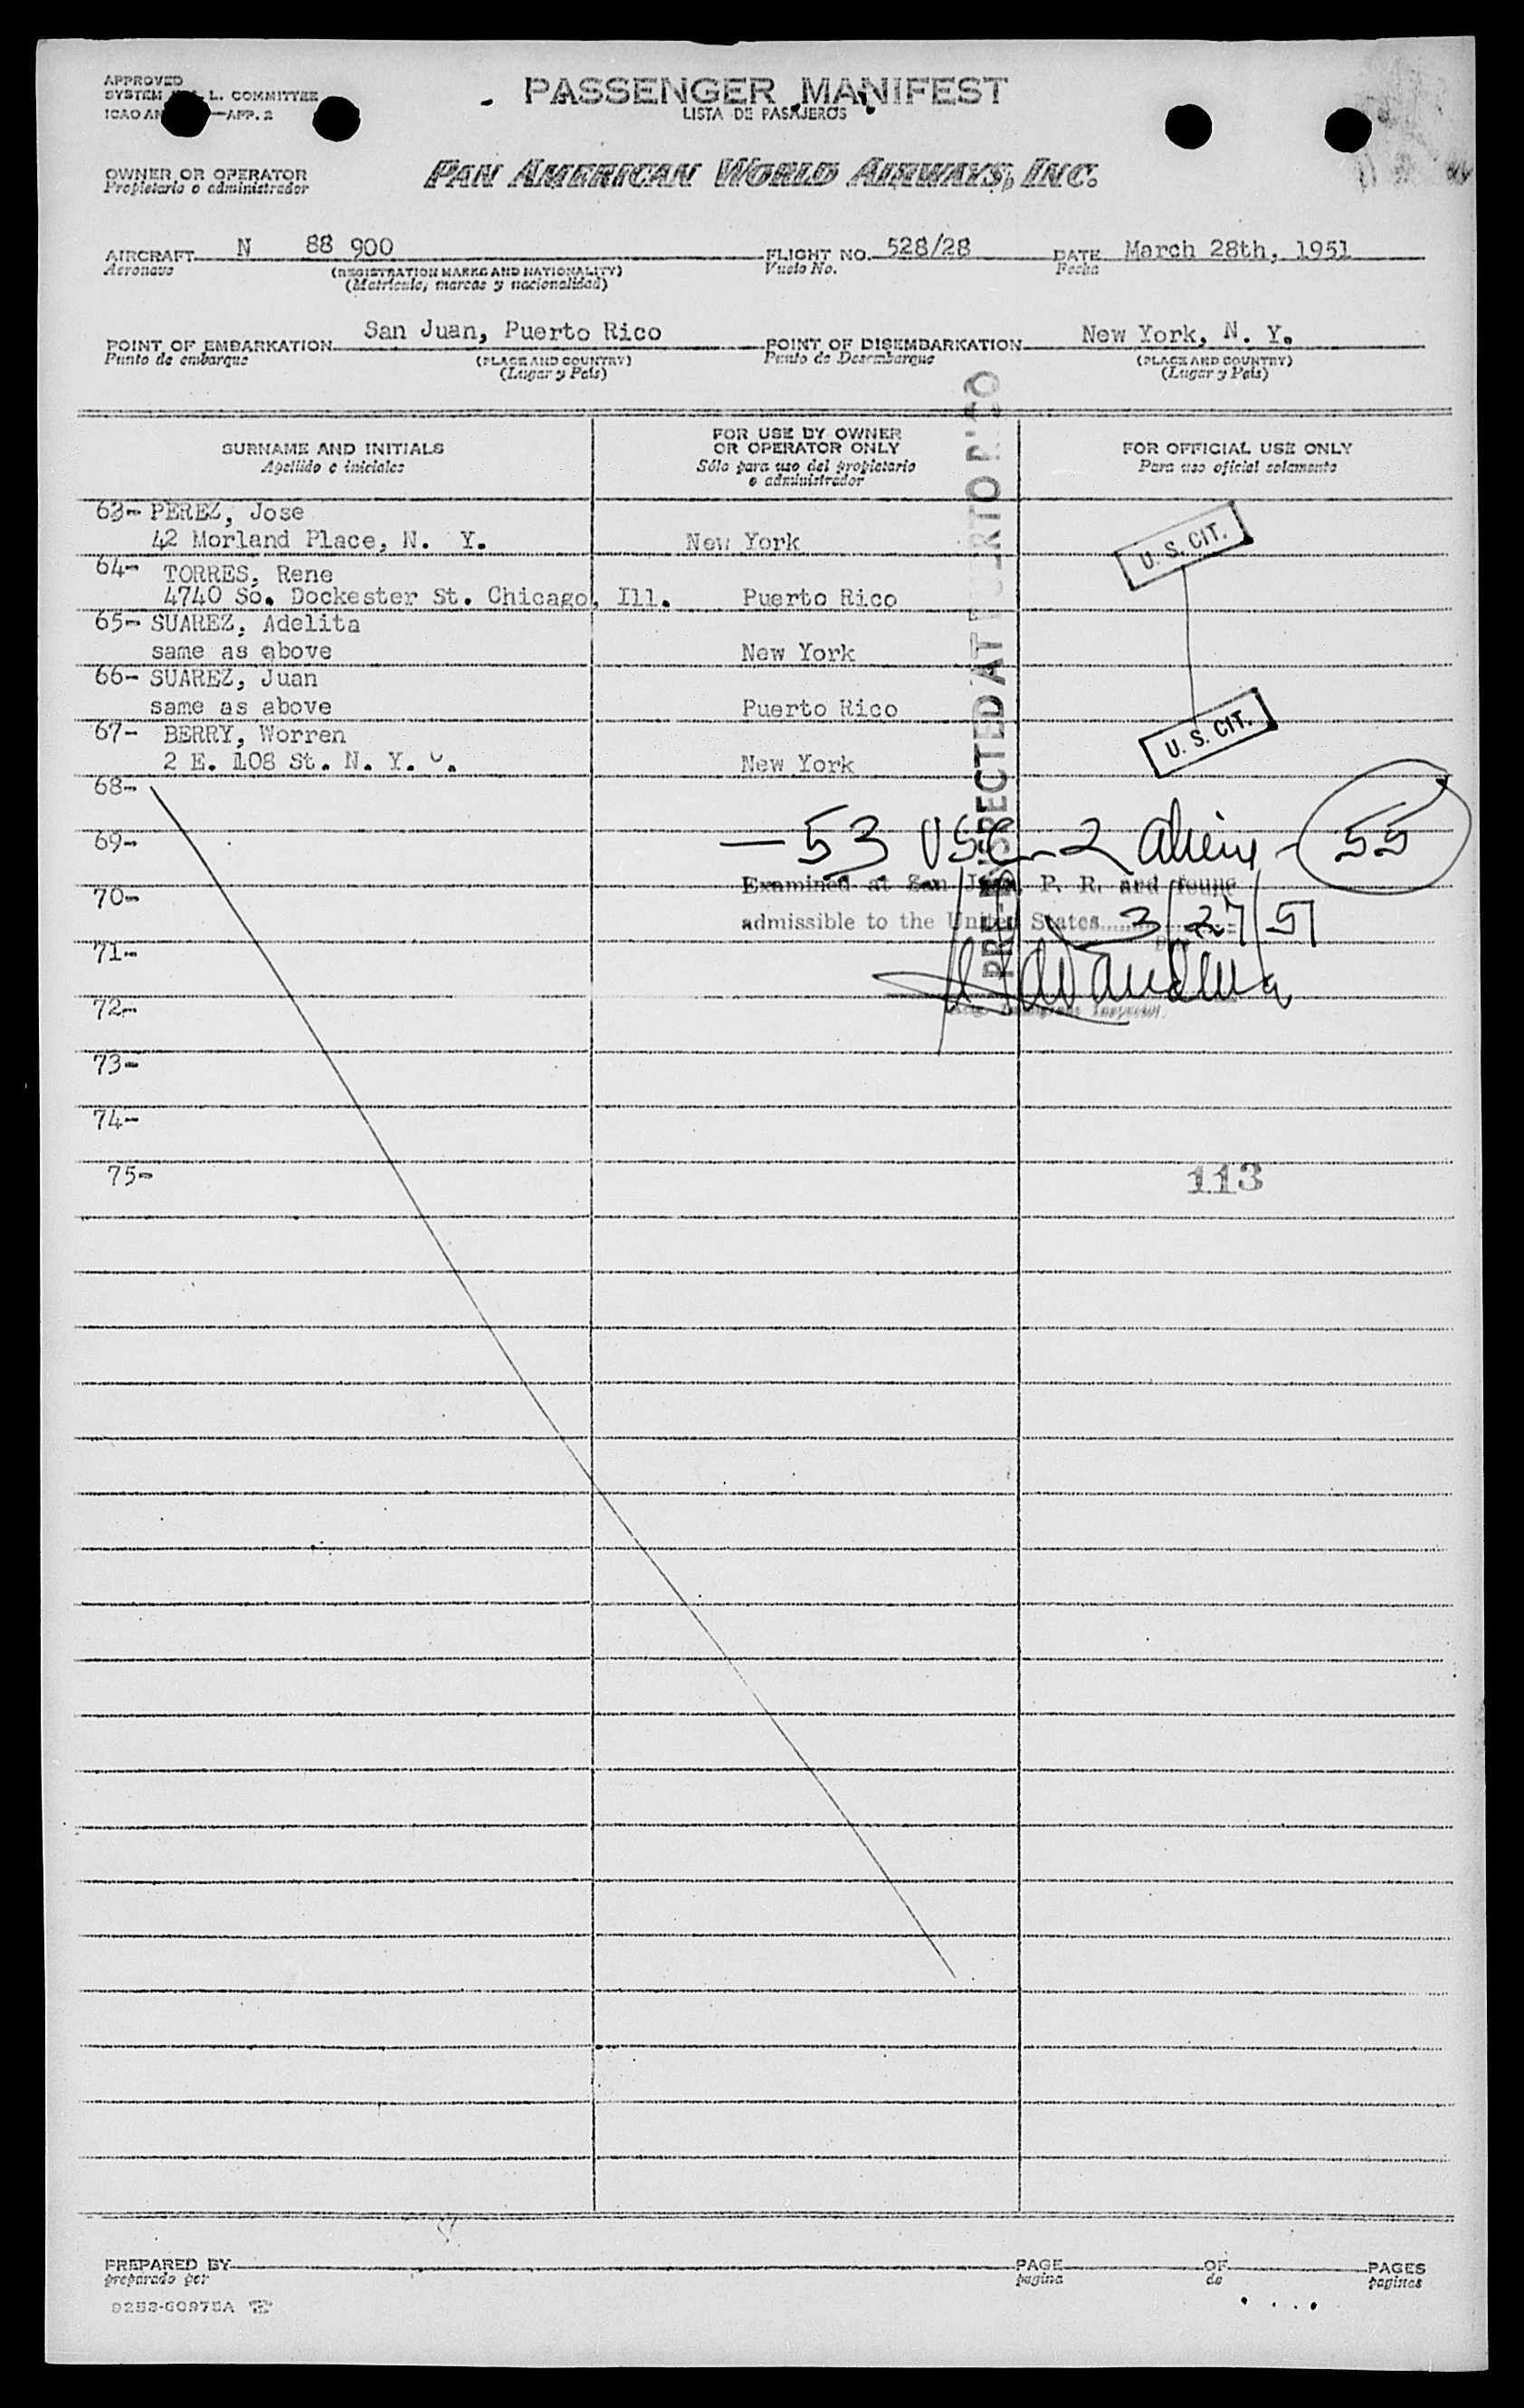 APPROVED
SYSTEM L. COMMITTEE
ICAO AN —APP. 2
PASSENGER MANIFEST
LISTA DE PASAJEROS
OWNER OR OPERATOR
Propietario o administrador
PAN AMERICAN WORLD AIRWAYS, INC.
AIRCRAFT N 88 900 FLIGHT NO. 528/28 DATE March 28th, 1951
Aeronave (REGISTRATION MARKS AND NATIONALITY) Vuelo No. Fecha
(Matricula, marcas y nacionalidad)
POINT OF EMBARKATION San Juan, Puerto Rico POINT OF DISEMBARKATION New York, N. Y.
Punto de embarque (PLACE AND COUNTRY) Punto de Desembarque (PLACE AND COUNTRY)
(Lugar y País) (Lugar y País)
SURNAME AND INITIALS
Apellido e iniciales
FOR USE BY OWNER
OR OPERATOR ONLY
Sólo para uso del propietario
o administrador
FOR OFFICIAL USE ONLY
Para uso oficial solamente
PRE-INSPECTED AT PUERTO RICO
63- PEREZ, Jose
42 Morland Place, N. Y. New York U. S. CIT.
64- TORRES, Rene
4740 So. Dockester St. Chicago, Ill. Puerto Rico
65- SUAREZ, Adelita
same as above New York
66- SUAREZ, Juan
same as above Puerto Rico
67- BERRY, Worren
2 E. 108 St. N. Y. C. New York U. S. CIT.
68-
69- — 53 USC - 2 aliens - 55
70- Examined at San Juan, P. R. and found
admissible to the United States 3/27/51
71-
72- Immigrant Inspector.
73-
74-
75- 113
PREPARED BY PAGE OF PAGES
preparado por pagina de paginas
9253-60975A